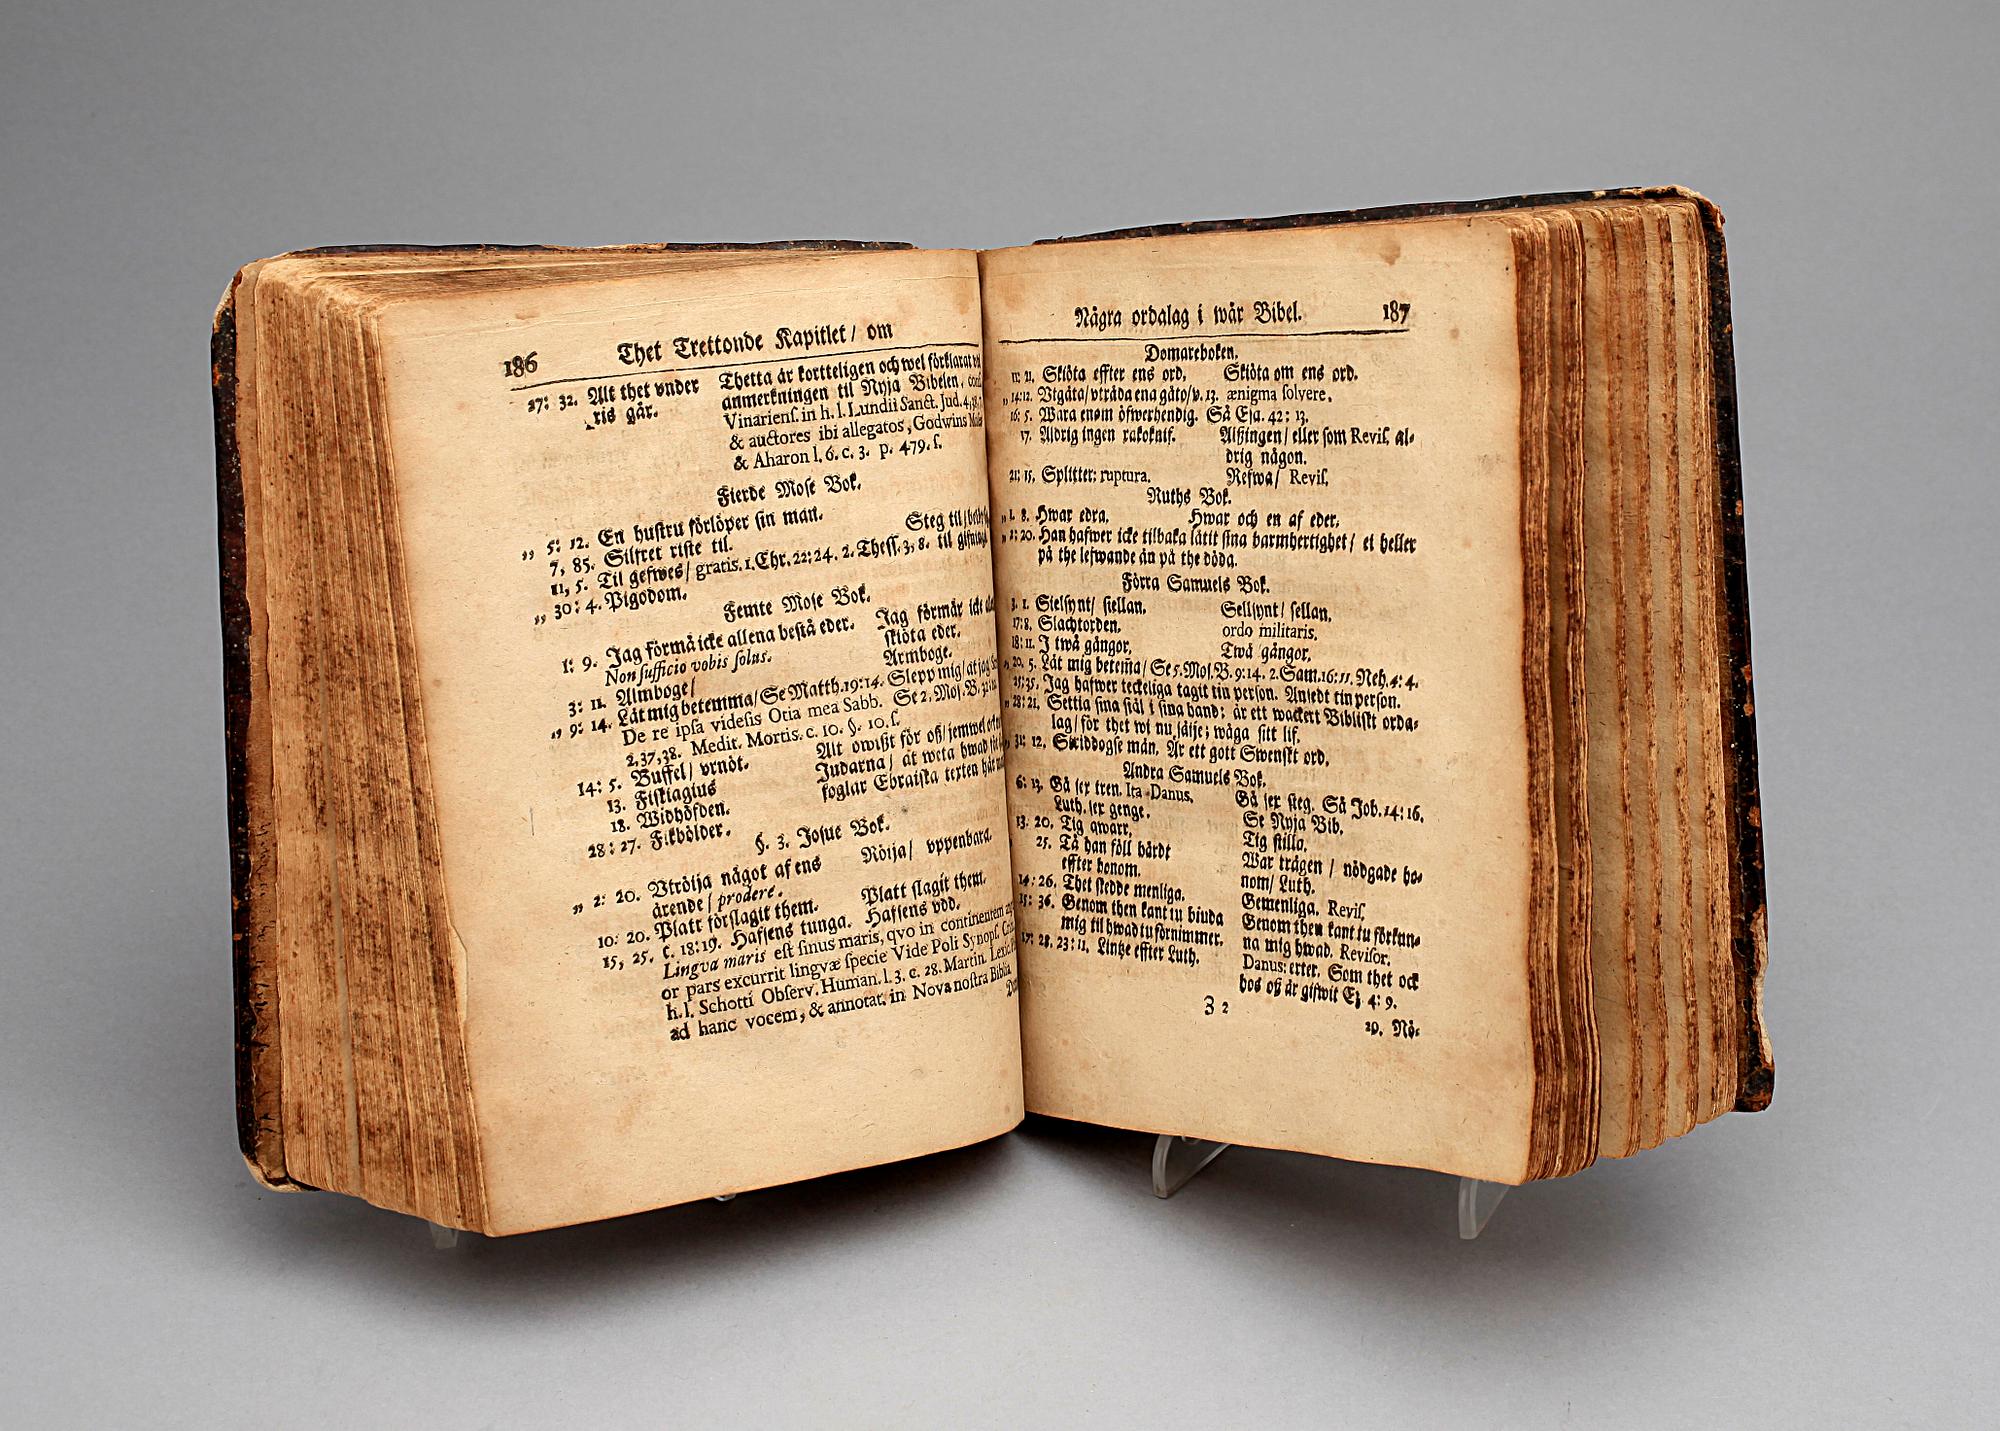 186 Thet Trettonde Kapitlet / om
27: 32. Alt thet vnder Thetta är kortteligen och wel förklarat
ris går. anmerkningen til Nyja Bibelen,
Vinarienſ. in h. l. Lundii Sanct. Jud. 4,
& auctores ibi allegatos, Godwins
& Aharon l. 6. c. 3. p. 479. ſ.
Fierde Moſe Bok.
„ 5: 12. En huſtru förlöper ſin man.
7, 85. Silfret riſte til. Steg til /
11, 5. Til gefwes / gratis. 1. Chr. 22: 24. 2. Theſſ. 3, 8. til
„ 30: 4. Pigodom.
Femte Moſe Bok.
1: 9. Jag förmå icke allena beſtå eder. Jag förmår icke
Non ſufficio vobis ſolus. ſkiöta eder.
3: 11. Almboge / Armboge.
„ 9: 14. Låt mig betemma / Se Matth. 19: 14. Slepp mig / at jag
De re ipſa videſis Otia mea Sabb. Se 2. Moſ. B.
2, 37, 38. Medit. Mortis. c. 10. §. 10. ſ.
14: 5. Buffel / vrnöt. Alt owißt för oß / jemwel
13. Fiſkiagius Judarna / at weta hwad
18. Widhöfden. foglar Ebraiſka texten här
28: 27. Fikbölder.
§. 3. Joſue Bok.
„ 2: 20. Vtröija något af ens Röija / vppenbara.
ärende / prodere.
10: 20. Platt förſlagit them. Platt ſlagit them.
15, 25. c. 18: 19. Hafſens tunga. Hafſens vdd.
Lingva maris eſt ſinus maris, qvo in continentem
or pars excurrit lingvæ ſpecie Vide Poli Synopſ.
h. l. Schotti Obſerv. Human. l. 3. c. 28. Martin. Lexic.
ad hanc vocem, & annotat. in Nova noſtra Biblia
Några ordalag i wår Bibel. 187
Domareboken.
11: 21. Skiöta effter ens ord. Skiöta om ens ord.
„ 14: 12. Vtgåta / vtråda ena gåto / v. 13. ænigma ſolvere.
16: 5. Wara enom öfwerhendig. Så Eſa. 42: 13.
17. Aldrig ingen rakoknif. Alßingen / eller ſom Reviſ. al-
drig någon.
21: 15. Splitter: ruptura. Refwa / Reviſ.
Ruths Bok.
„ 1. 8. Hwar edra. Hwar och en af eder.
„ 2: 20. Han hafwer icke tilbaka låtit ſina barmhertighet / ei heller
på the lefwande än på the döda.
Förra Samuels Bok.
3. 1. Sielſynt / ſiellan. Sellſynt / ſellan.
17: 8. Slachtorden. ordo militaris.
18: 11. J twå gångor. Twå gångor.
„ 20. 5. Låt mig betema / Se 5. Moſ. B. 9: 14. 2. Sam. 16: 11. Neh. 4: 4.
25: 35. Jag hafwer teckeliga tagit tin perſon. Anſedt tin perſon.
„ 28: 21. Settia ſina ſiäl i ſina hand: är ett wackert Bibliſkt orda-
lag / för thet wi nu ſäije; wåga ſitt lif.
„ 31: 12. Skriddogſe män. Är ett gott Swenſkt ord.
Andra Samuels Bok.
6: 13. Gå ſex tren. Ita Danus. Gå ſex ſteg. Så Job. 14: 16.
Luth. ſex genge. Se Nyja Bib.
13. 20. Tig qwart. Tig ſtilla.
25. Tå han föll hårdt War trägen / nödgade ho-
effter honom. nom / Luth.
14: 26. Thet ſkedde menliga. Gemenliga. Reviſ.
15: 36. Genom then kant tu biuda Genom then kant tu förkun-
mig til hwad tu förnimmer. na mig hwad. Reviſor.
17: 28. 23: 11. Lintze effter Luth. Danus: erter. Som thet ock
hos oß är gifwit Eſ. 4: 9.
3 2
29. Nö-